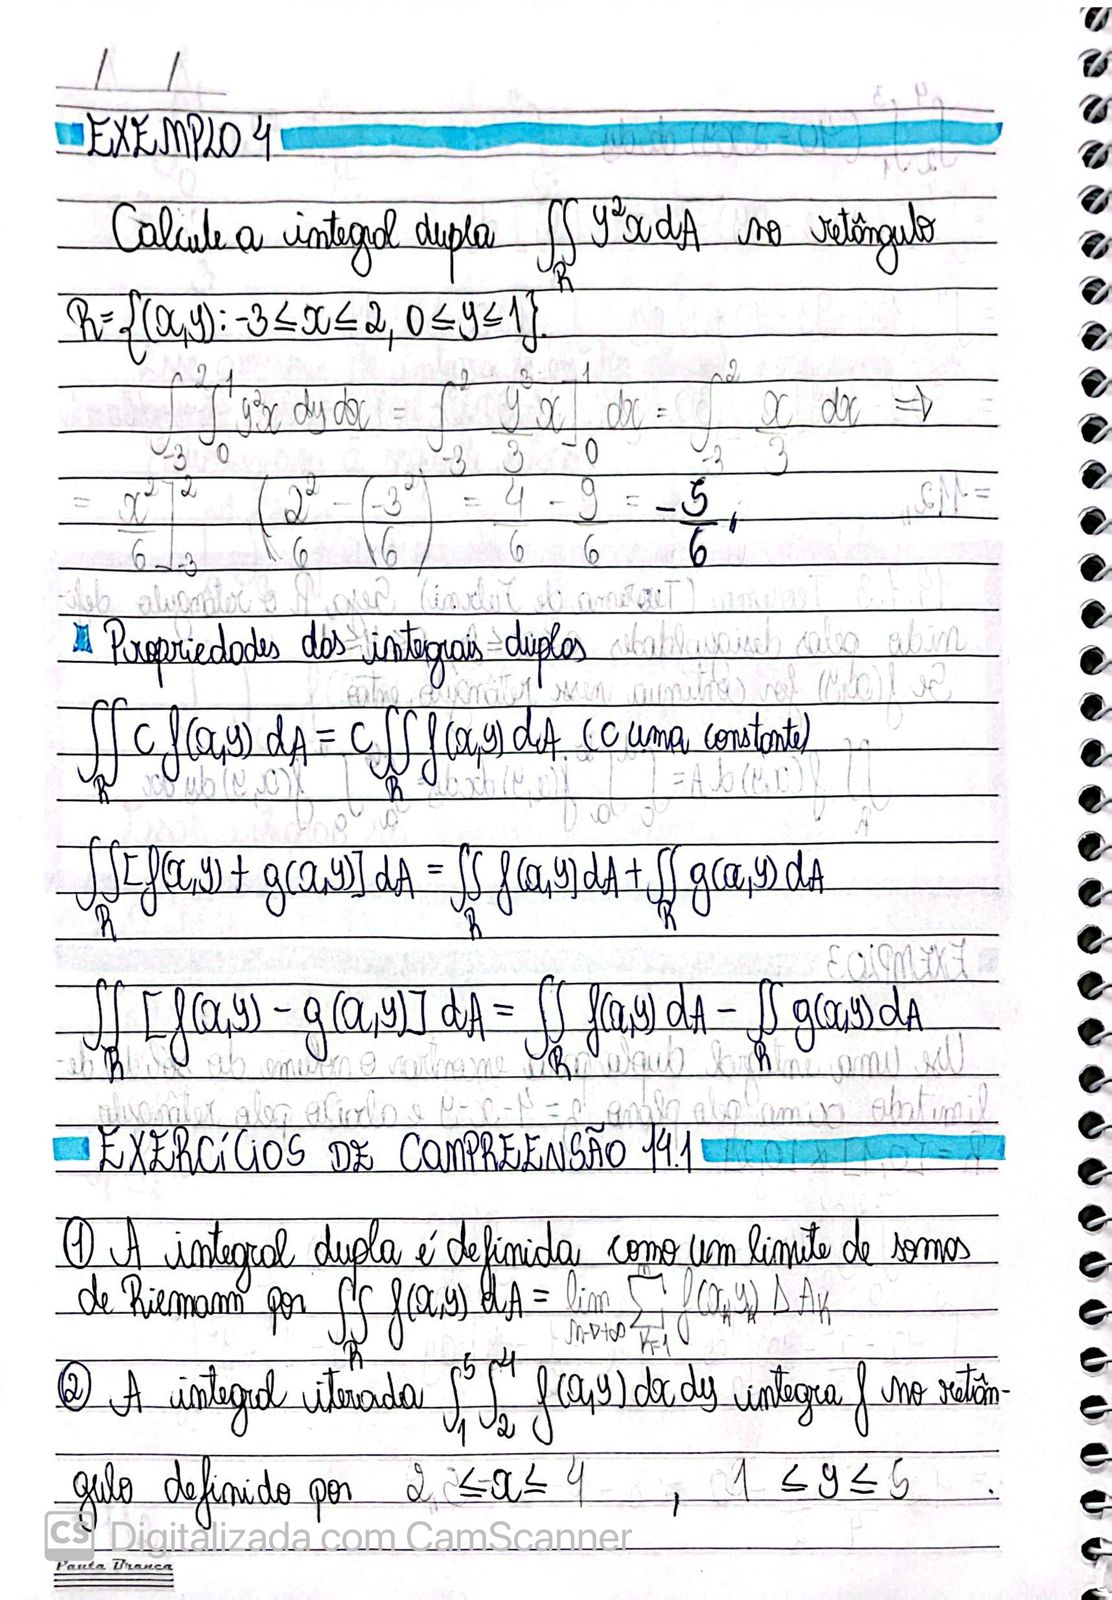 / /
EXEMPLO 4
Calcule a integral dupla ∬_R y²x dA no retângulo
R = {(x,y): -3 ≤ x ≤ 2, 0 ≤ y ≤ 1}.
∫_{-3}^{2} ∫_{0}^{1} y²x dy dx = ∫_{-3}^{2} y³/3 x]_{0}^{1} dx = ∫_{-3}^{2} x/3 dx ⇒
= x²/6]_{-3}^{2} (2²/6 - (-3²/6) = 4/6 - 9/6 = -5/6 //
Propriedades das integrais duplas
∬_R c f(x,y) dA = c ∬_R f(x,y) dA. (c uma constante)
∬_R [f(x,y) + g(x,y)] dA = ∬_R f(x,y) dA + ∬_R g(x,y) dA
∬_R [f(x,y) - g(x,y)] dA = ∬_R f(x,y) dA - ∬_R g(x,y) dA
EXERCÍCIOS DE COMPREENSÃO 14.1
① A integral dupla é definida como um limite de somas
de Riemann por ∬_R f(x,y) dA = lim_{n→+∞} Σ_{k=1}^{n} f(x_k, y_k) ΔA_k
② A integral iterada ∫_{1}^{5} ∫_{2}^{4} f(x,y) dx dy integra f no retân-
gulo definido por 2 ≤ x ≤ 4 , 1 ≤ y ≤ 5 .
CS Digitalizada com CamScanner
Pauta Branca